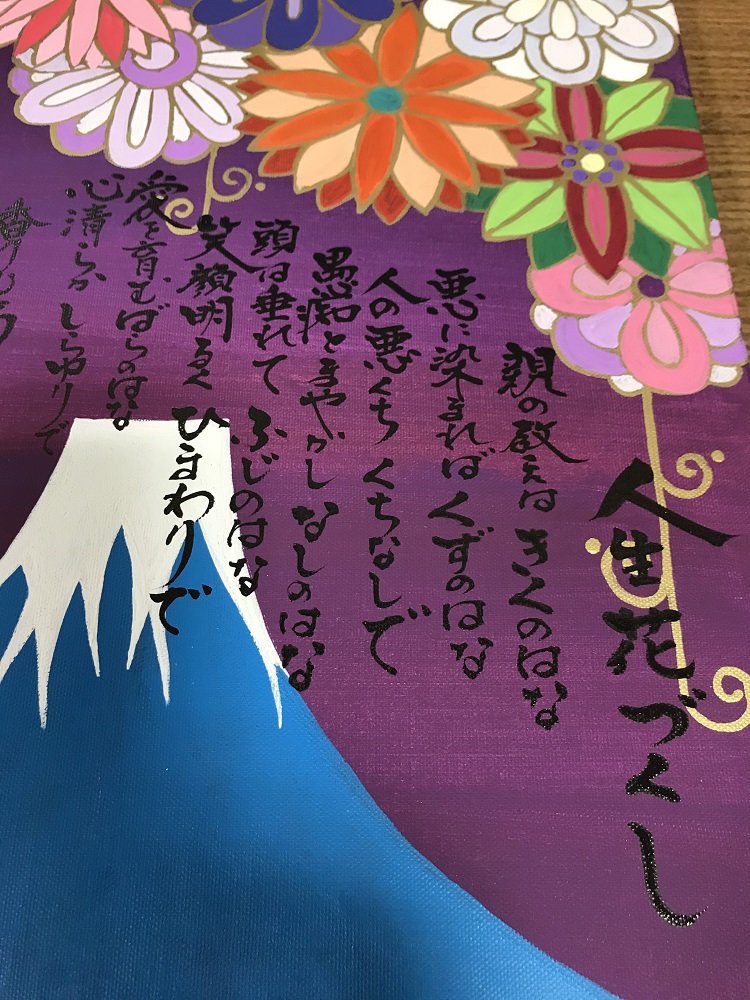 人生花づくし
親の教えは きくのはな
悪に染まれば くずのはな
人の悪くち くちなしで
愚痴とまやかし なしのはな
頭は垂れて ふじのはな
笑顔明るく ひまわりで
愛を育むばらのはな
心清らか しらゆりで